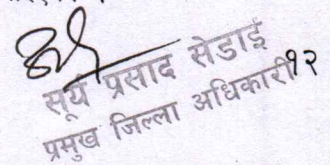 सूर्य प्रसाद सेडाई
प्रमुख जिल्ला अधिकारी १२